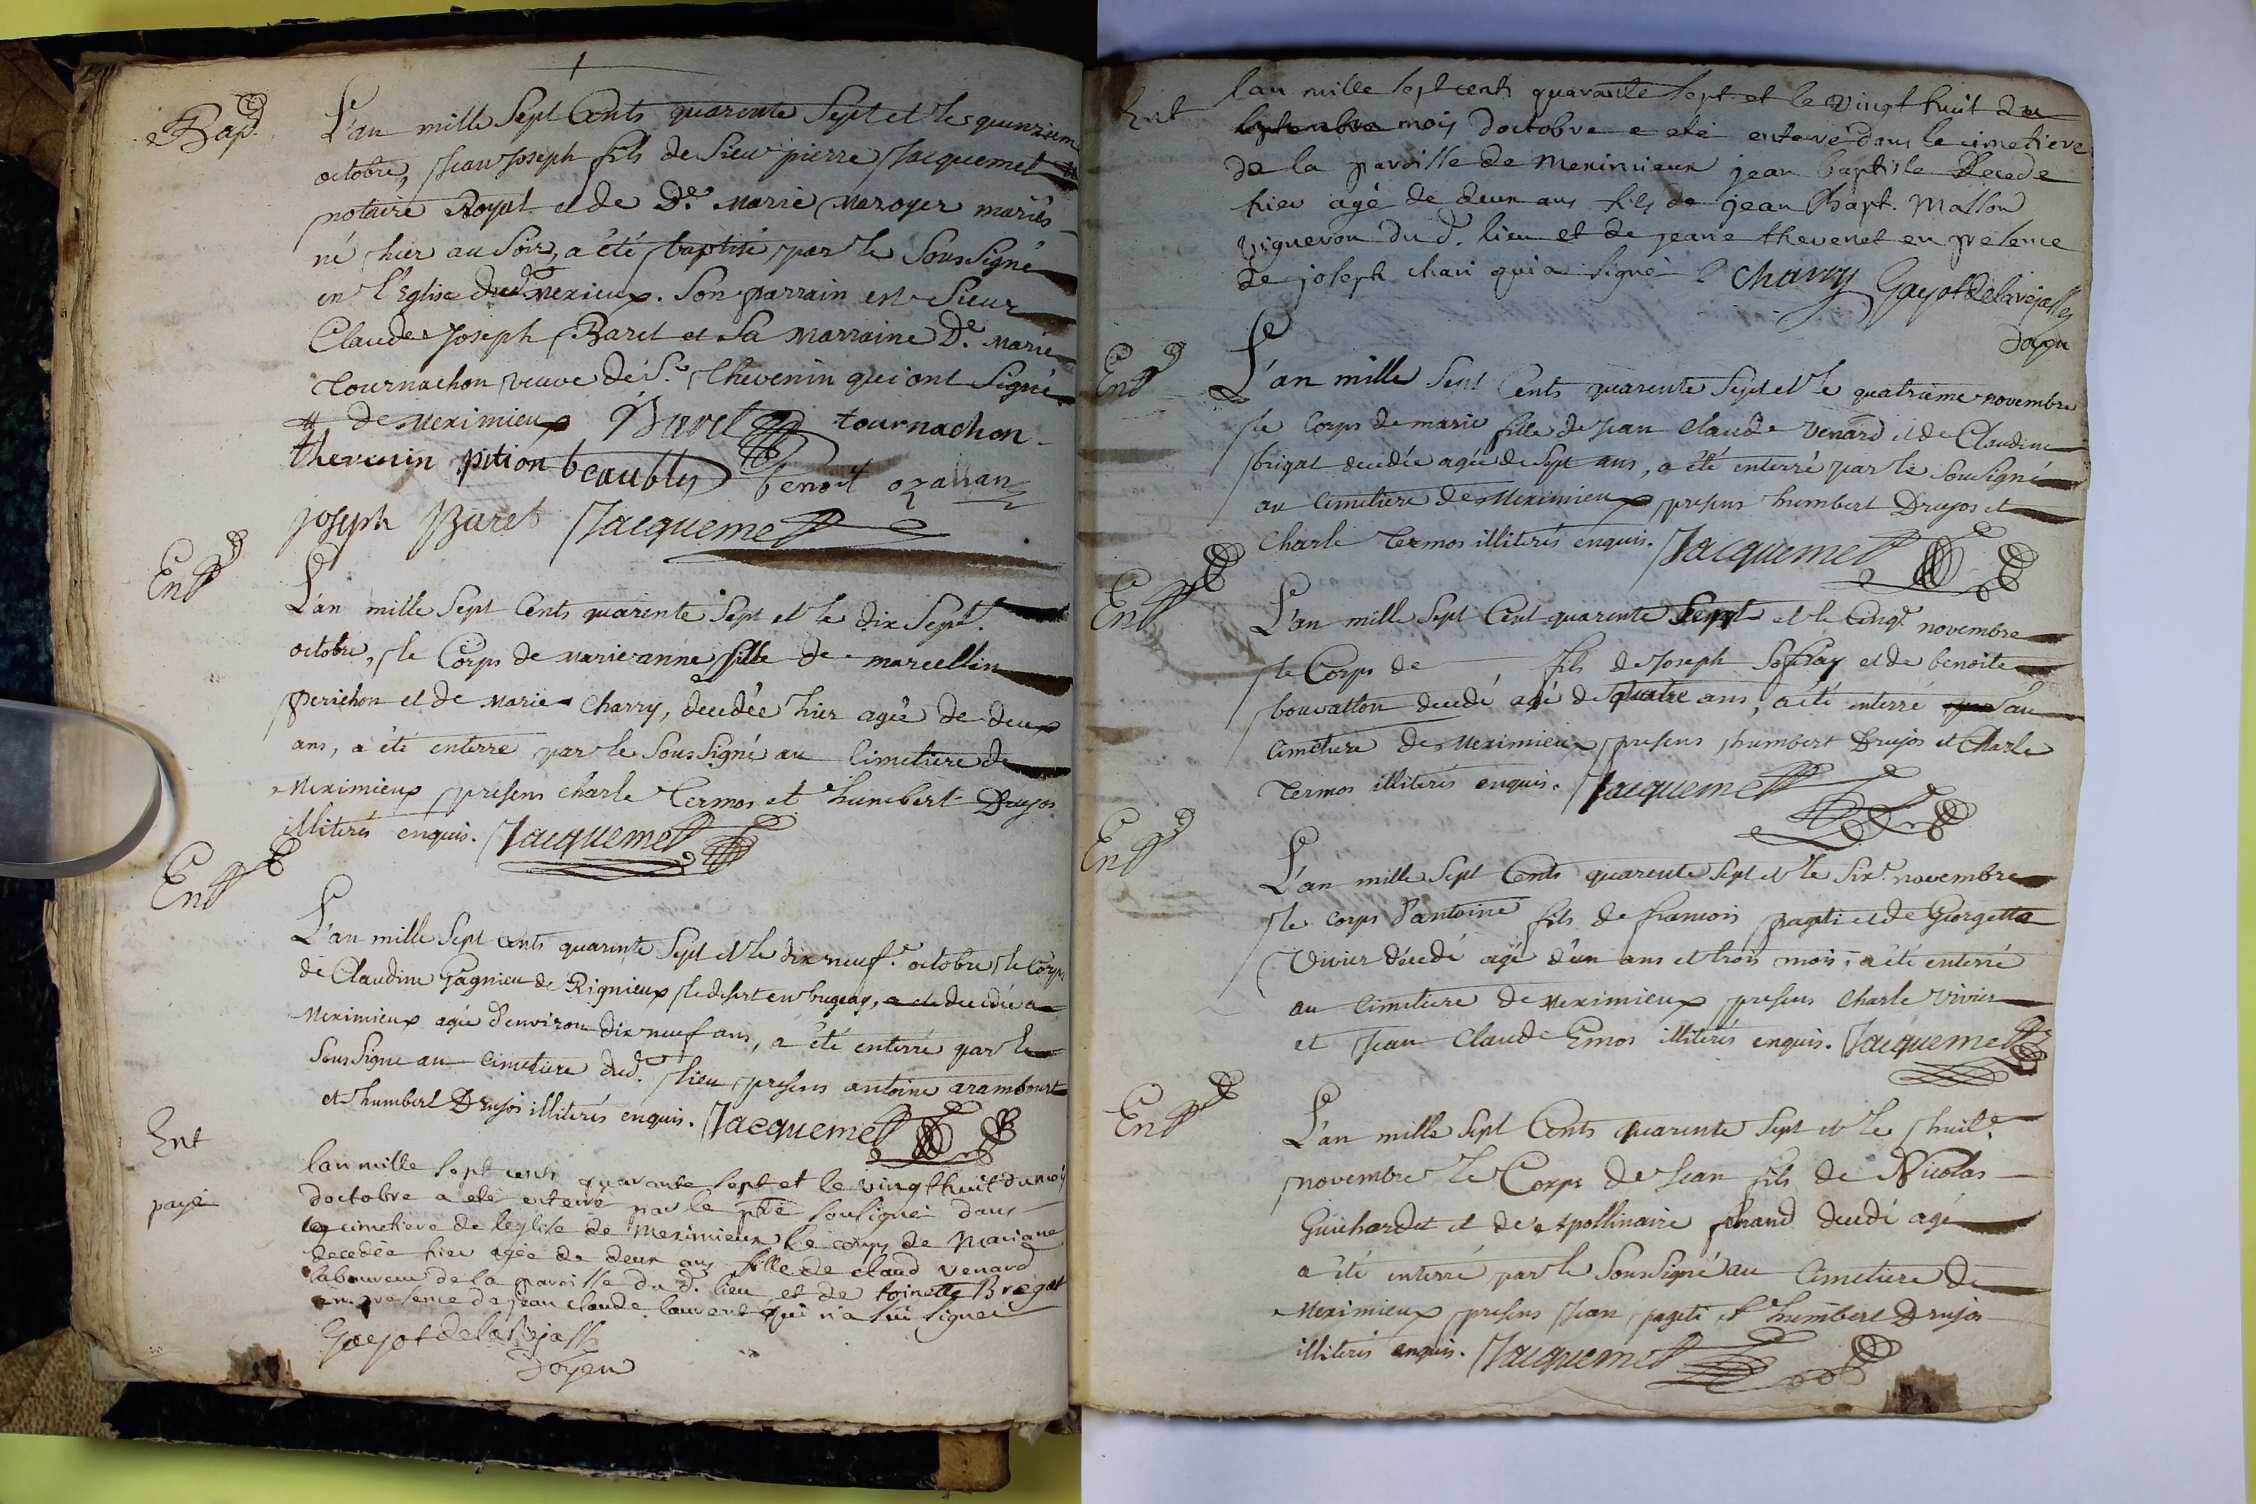 Bapt
L'an mille Sept Cents quarente Sept et le quinziem
octobre, Jean Joseph fils de Sieur pierre Jacquemet #
notaire Royal et de De. Marie Maroyer mariés
né hier au Soir, a été baptisé par le Soussigné
en l'Eglise dud. Mexieux. Son parrain est Sieur
Claude Joseph Baret et Sa Marraine De. Marie
Tournachon veuve de Sr. Thevenin qui ont Signé
# de Meximieux Baret tournachon
thevenin pition beaublez benoit ozanan
joseph Baret Jacquemet
Ent
L'an mille Sept Cents quarente Sept et le dix Sept.
octobre, le Corps de Marie anne fille de marcellin
perichon et de Marie Charry, decedée hier agée de deux
ans, a été enterré par le Soussigné au Cimetiere de
Meximieux presens charle Termos et humbert Drujos
illiterés enquis. Jacquemet
Ent
L'an mille Sept Cents quarente Sept et le dix neuf.e octobre le Corps
de Claudine Gagnieu de Rignieux le desert en bugeay, a été decedée a
Meximieux agée d'environ dix neuf ans, a été enterré par le
Soussigné au Cimetiere dud. lieu presens antoine arambourt
et humbert Drujos illiterés enquis. Jacquemet
Ent
payé
lan mille sept cents quarante sept et le vingt huit du mois
doctobre a eté enterré par le ptre soussigné dans
le cimetiere de leglise de Meximieux le corps de Mariane
decedée hier agée de deux ans fille de claud venard
laboureur de la paroisse du d. lieu et de toinette Bregat
en presence de jean claude laurent qui n'a sçu signer
Gayot delavejasse
Doyen
Ent
lan mille sept cents quarante sept et le vingt huit du
septembre mois doctobre a eté enterré dans le cimetiere
de la paroisse de Meximieux jean baptiste decede
hier agé de deux ans fils de jean Bapt. Masson
vigneron du d. lieu et de jeane thevenet en presence
de joseph chari qui a signé Charry Gayot delavejasse
doyen
Ent
L'an mille Sept Cents quarente Sept et le quatrieme novembre
le Corps de marie fille de Jean Claude Venard et de Claudine
brigat decedée agée de Sept ans, a été enterré par le Soussigné
au Cimetiere de Meximieux presens humbert Drujos et
Charle Termos illiterés enquis. Jacquemet
Ent
L'an mille Sept Cent quarente Sept et le Cinq.e novembre
le Corps de fils de Joseph Soffray et de benoite
bouvatton decedé agé de quatre ans, a été enterré par au
Cimetiere de Meximieux presens humbert Drujos et Charle
Termos illiterés enquis. Jacquemet
Ent
L'an mille Sept Cents quarente Sept et le Six.e novembre
le corps d'antoine fils de francois pagti et de Georgette
Vivier décedé agé d'un ans et trois mois, a été enterré
au Cimetiere de Meximieux presens Charle Vivier
et Jean Claude Emos illiterés enquis. Jacquemet
Ent
L'an mille Sept Cents quarente Sept et le huit.e
novembre le Corps de Jean fils de Nicolas
Guichardet et de Apollinaire decedé agé
a été enterré par le Soussigné au Cimetiere de
Meximieux presens Jean pageti et humbert Drujos
illiterés enquis. Jacquemet